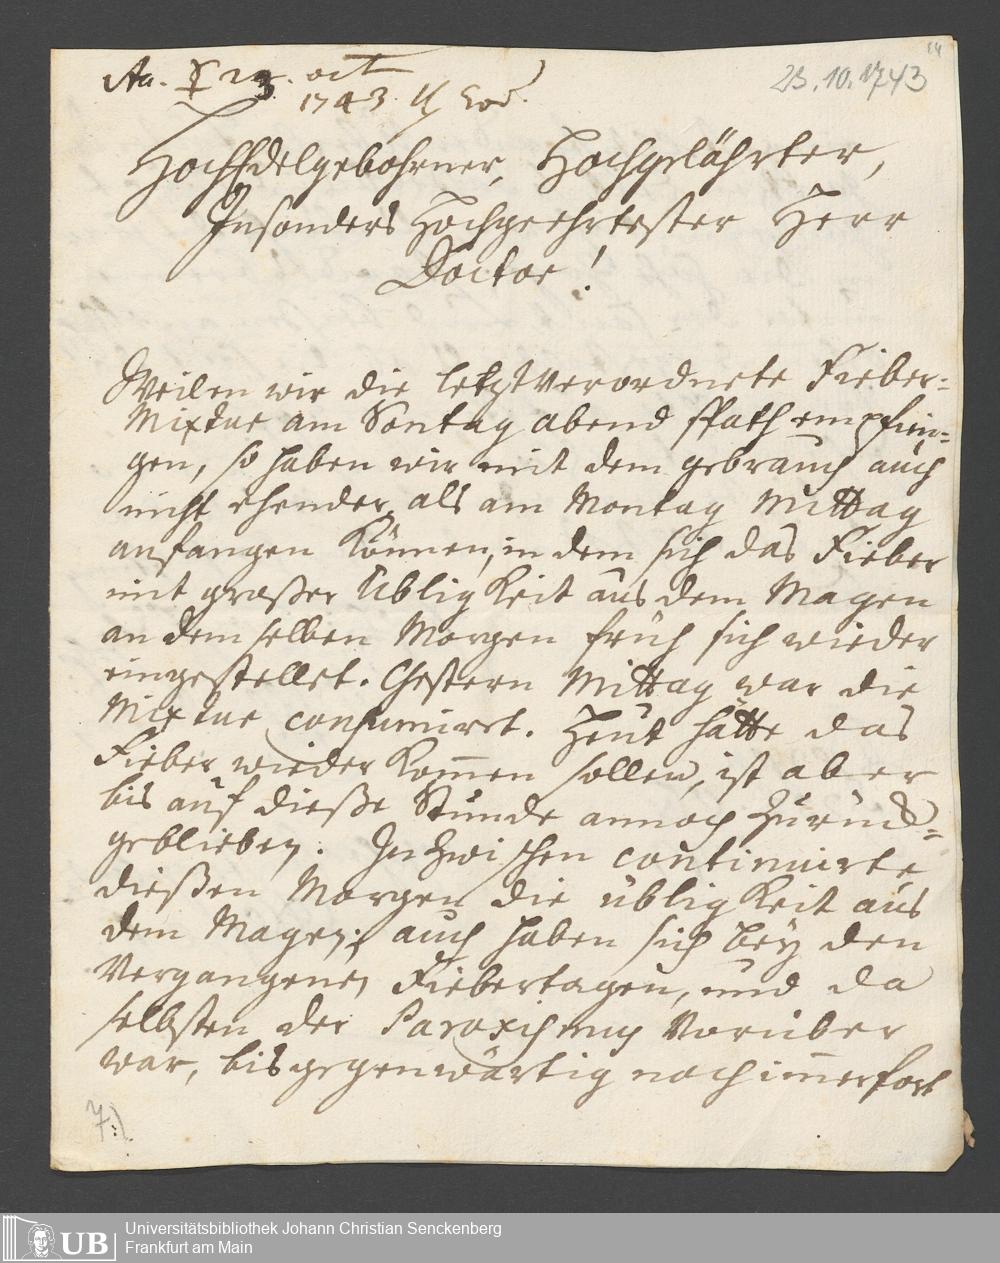 Aa. ☿ 23. oct
1743. Eod.
23.10.1743
14
HochEdelgebohrner, Hochgelährter,
Insonders Hochgeehrtester Herr
Doctor!
Weilen wir die letztverordnete Fieber-
Mixtur am Sontag abend spath empfin-
gen, so haben wir mit dem gebrauch auch
nicht ehender, als am Montag Mittag
anfangen können, in dem sich das Fieber
mit großer übligkeit aus dem Magen
an dem selben Morgen früh sich wieder
eingestellet. Gestern Mittag war die
Mixtur consumirt. Heut hätte das
Fieber wieder kom̄en sollen, ist aber
bis auf dieße Stunde annoch zurück-
geblieben. Inzwischen continuirte
dießen Morgen die übligkeit aus
dem Magen; auch haben sich bey den
Vergangenen Fiebertagen, und da
selbsten der Paroxismus vorüber
war, bis gegenwärtig noch im̄erfort
7.)
UB
Universitätsbibliothek Johann Christian Senckenberg
Frankfurt am Main